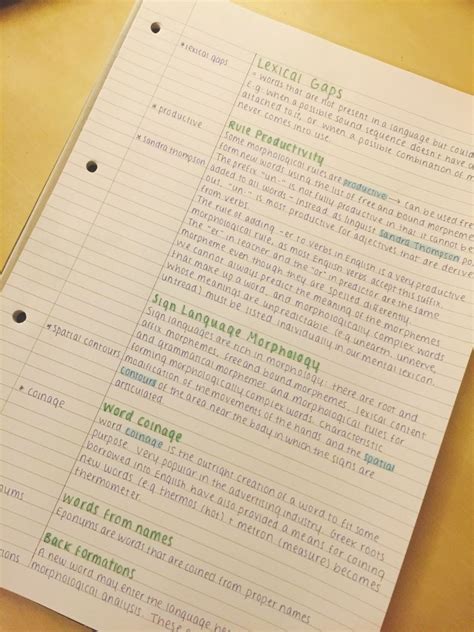 *lexical gaps
*productive
*sandra thompson
*spatial contours
* coinage
Lexical Gaps
- words that are not present in a language but could
e.g. when a possible sound sequence doesn't have
attached to it, or when a possible combination of
never comes into use.
Rule Productivity
Some morphological rules are productive → can be used
form new words using the list of free and bound morpheme
The prefix "un-" is not fully productive in that it cannot be
added to all words - instead as linguist Sandra Thompson
out, "un-" is most productive for adjectives that are
from verbs.
The rule of adding -er to verbs in English is a very productive
morphological rule, as most English verbs accept this suffix.
The "er" in teacher and the "or" in predictor are the same
morpheme even though they are spelled differently.
We cannot always predict the meaning of the morphemes
that make up a word, and morphologically complex words
whose meanings are unpredictable (e.g unearth, unnerve,
untread) must be listed individually in our mental lexicon.
Sign Language Morphology
Sign languages are rich in morphology: there are root and
affix morphemes, free and bound morphemes, lexical content
and grammatical morphemes and morphological rules for
forming morphologically complex words. Characteristic
modification of the movements of the hands and the spatial
contours of the area near the body in which the signs are
articulated.
Word Coinage
word coinage is the outright creation of a word to fit some
purpose. Very popular in the advertising industry. Greek roots
borrowed into English have also provided a means for coining
new words. (e.g thermos (hot) + metron (measure) becomes
thermometer.
Words from names
Eponums are words that are coined from proper names
Back Formations
A new word may enter the language
morphological analysis. These